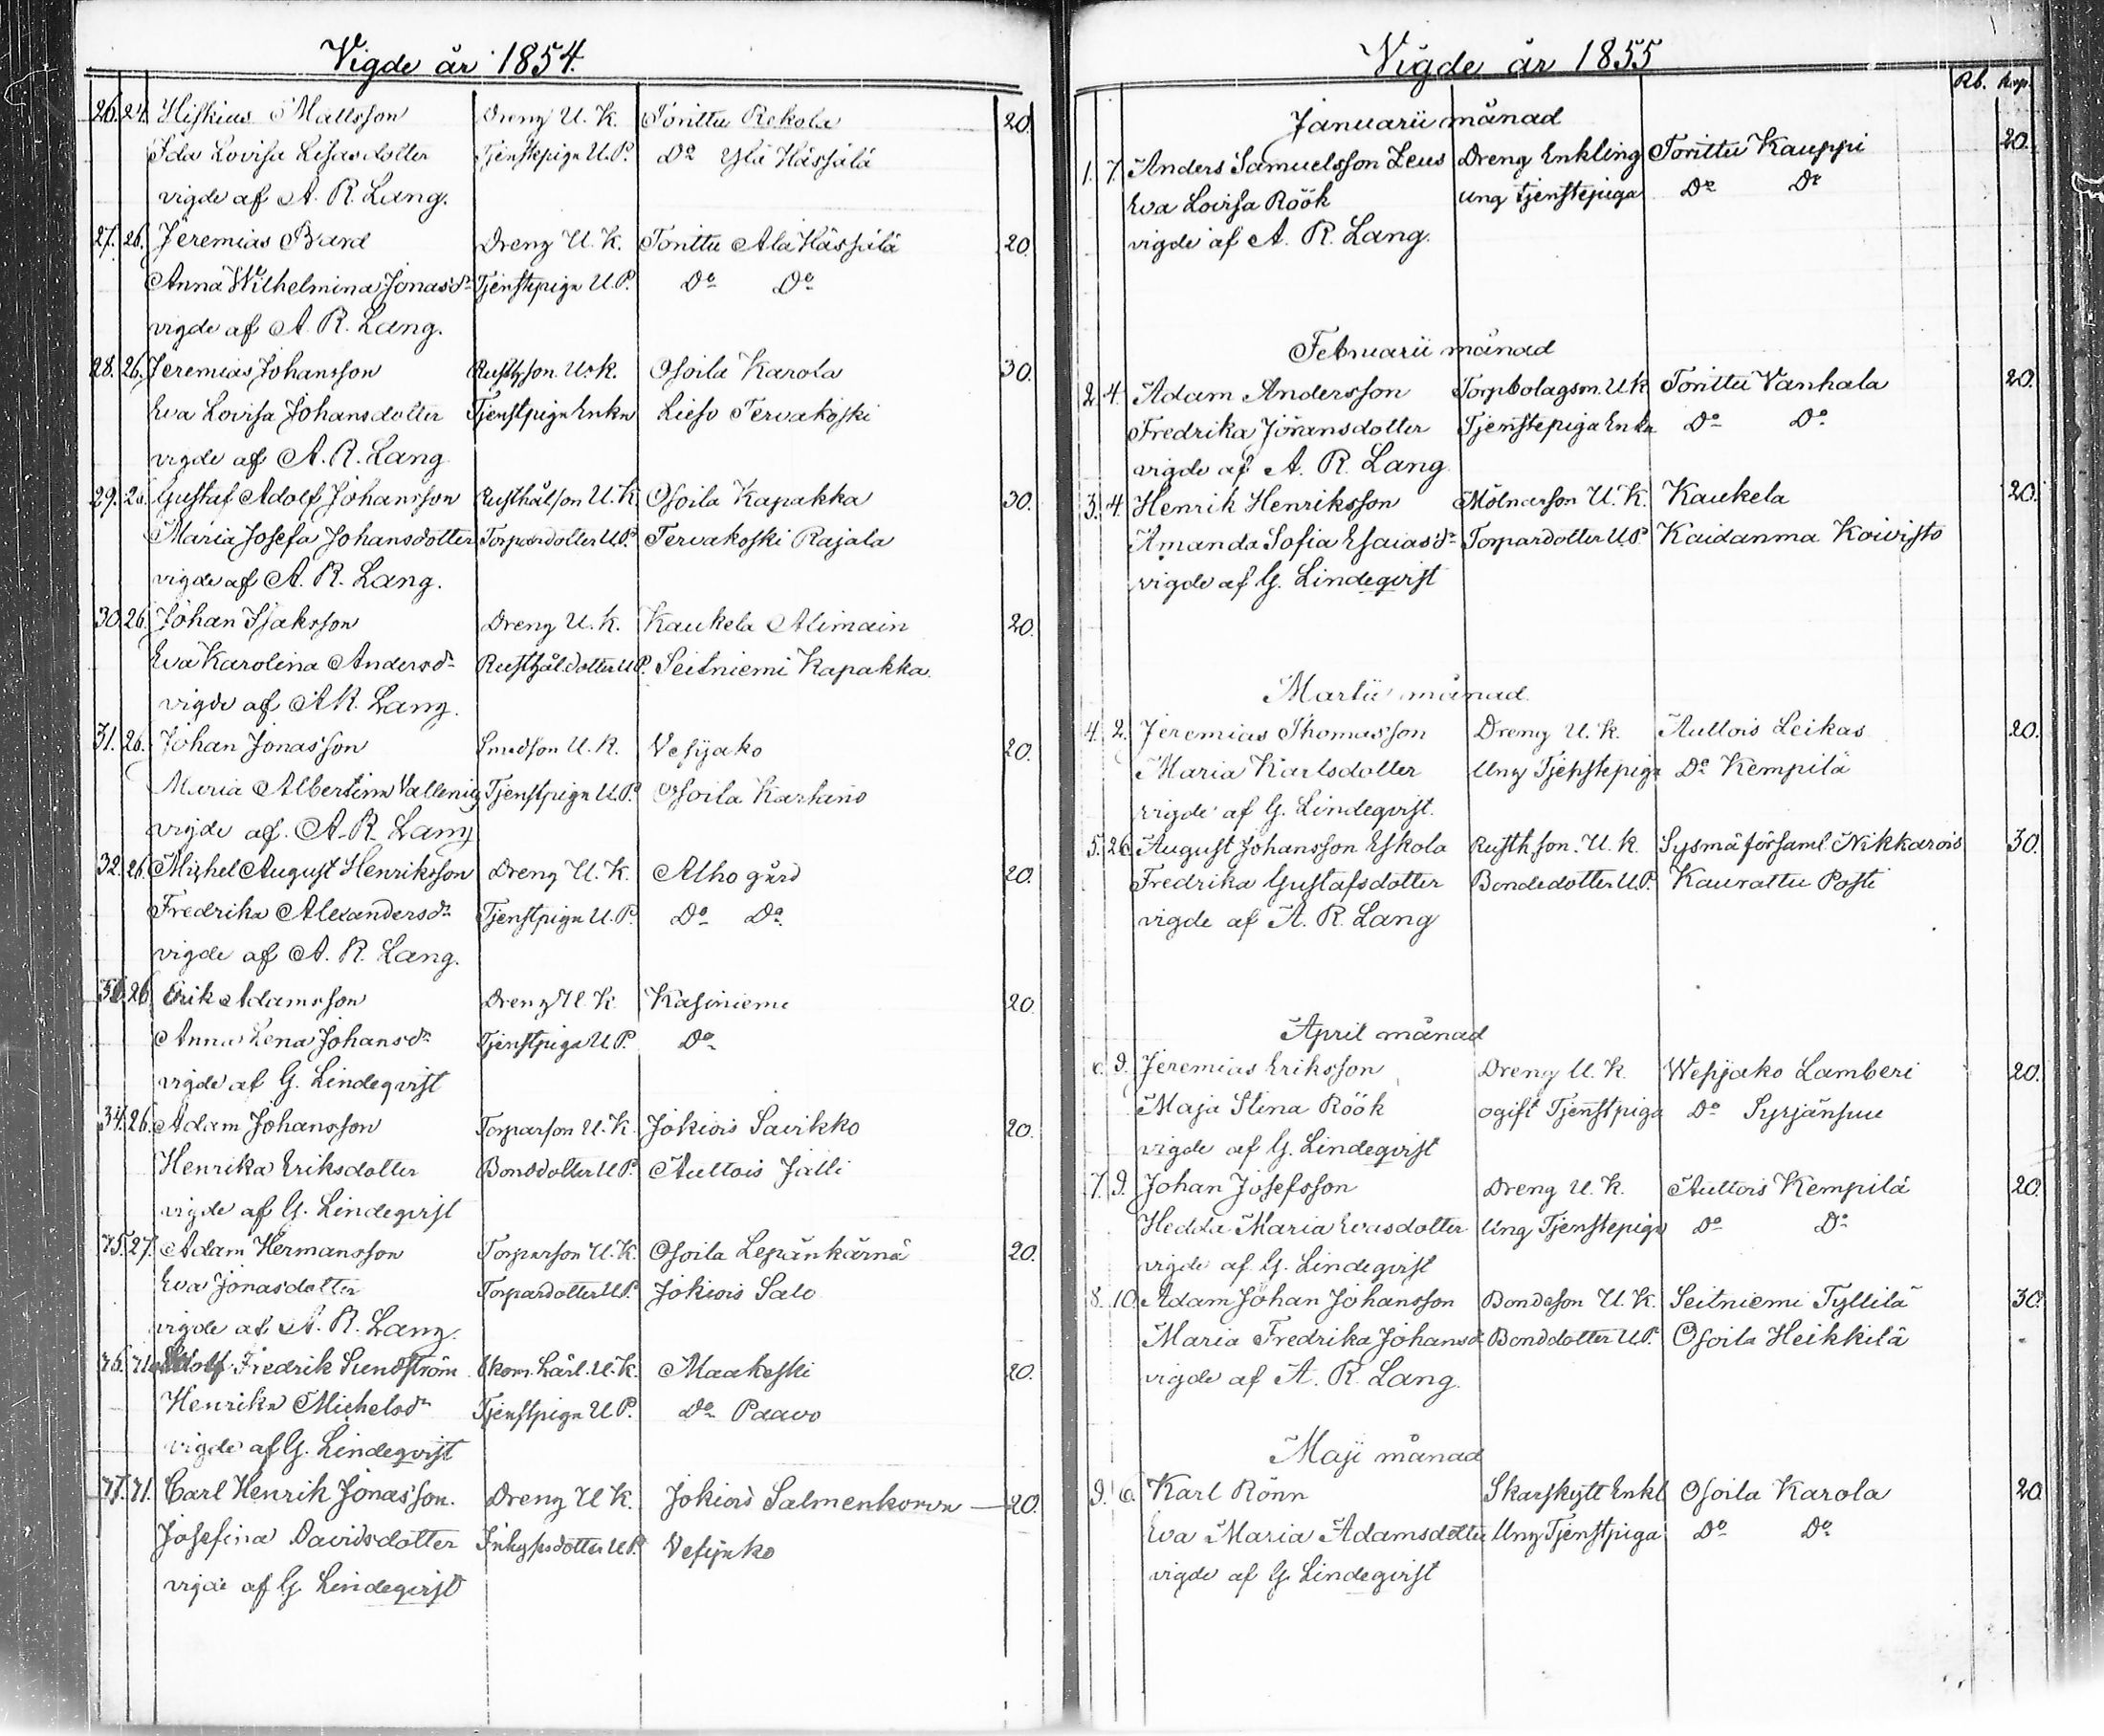 Vigde år 1854.
26. 24. Hiskius Mattsson Dreng U. K. Torittu Rekola 20.
Ida Lovisa Lisasdotter Tjenstepiga U. P. Do Ylä Hässälä
vigde af A. R. Lang.
27. 26. Jeremias Bard Dreng U. K. Torittu Ala Hässälä 20
Anna Wilhelmina Jonasdr Tjenstepiga U. P. Do Do
vigde af A. R. Lang.
28. 26. Jeremias Johansson Rusthson. U. K. Osoila Karola 30.
Eva Lovisa Johansdotter Tjenstpiga Enka Lieso Tervakoski
vigde af A. R. Lang
29. 26. Gustaf Adolf Johansson Rusthålson U. K. Osoila Kapakka 30.
Maria Josefa Johansdotter Torpardotter U. P. Tervakoski Rajala
vigde af A. R. Lang.
30. 26. Johan Isaksson Dreng U. K. Kaukela Alimain 20.
Eva Karolina Andersdr Rusthåldotter U. P. Seitniemi Kapakka.
vigde af A R. Lang.
31. 26. Johan Jonasson Smedson U. K. Vesijako 20.
Maria Albertina Vallenig Tjenstpiga U. P. Osoila Karhano
vigde af. A. R. Lang
32. 26. Michel August Henriksson Dreng U. K. Alho gård 20.
Fredrika Alexandersdr Tjenstpiga U. P. Do Do
vigde af A. R. Lang.
26. Erik Adamsson Dreng U. K. Kasiniemi 20
Anna Lena Johansdr Tjenstpiga U. P. Do
vigde af G. Lindeqvist
34. 26. Adam Johansson Torparson U. K. Jokiois Savikko 20.
Henrika Eriksdotter Bonddotter U. P. Auttois Jälli
vigde af G. Lindeqvist
75. 27. Adam Hermansson Torparson U. K. Osoila Lepänkärnä 20.
Eva Jonasdotter Torpardotter U. P. Jokiois Salo
vigde af A. R. Lang.
76. Adolf Fredrik Sundström Skom. Lärl. U. K. Maakeski 20.
Henrika Michelsdr Tjenstpiga U. P. Do Paavo
vigde af G. Lindeqvist
77. 71. Carl Henrik Jonasson. Dreng U. K. Jokiois Salmenkorva — 20.
Josefina Davidsdotter Inhysdotter U. P. Vesijako
vigde af G. Lindeqvist
Vigde år 1855
Rb. Kop.
Januarii månad
1. 7. Anders Samuelsson Leus Dreng Enkling Torittu Kauppi 20.
Eva Lovisa Röök Ung tjenstepiga Do Do
vigde af A. R. Lang.
Februarii månad
2. 4. Adam Andersson Torpbolagsm. U. K. Torittu Vanhala 20.
Fredrika Jöransdotter Tjenstepiga Enka Do Do
vigde af A. R. Lang.
3. 4. Henrik Henriksson Mölnarson U. K. Kaukela 20.
Amanda Sofia Esaiasdr Torpardotter U. P. Kaidanma Koivisto
vigde af G. Lindeqvist
Martii månad.
4. 2. Jeremias Thomasson Dreng U. K. Auttois Leikas 20.
Maria Karlsdotter Ung Tjenstepiga Do Kempilä
vigde af G. Lindeqvist.
5. 26. August Johansson Eskola Rusth. son. U. K. Sysmä församl. Nikkarois 30.
Fredrika Gustafsdotter Bondedotter U. P. Kaurattu Posti
vigde af A. R. Lang
April månad
6. 9. Jeremias Eriksson Dreng U. K. Wesijako Lamberi 20.
Maja Stina Röök ogift Tjenstpiga Do Syrjänsuu
vigde af G. Lindeqvist
7. 9. Johan Josefsson Dreng U. K. Auttois Kempilä 20.
Hedda Maria Evasdotter Ung Tjenstepiga Do Do
vigde af G. Lindeqvist
8. 10. Adam Johan Johansson Bondeson U. K. Seitniemi Tyllilä 30.
Maria Fredrika Johansd Bonddotter U. P. Osoila Heikkilä
vigde af A. R. Lang.
Maji månad
9. 6. Karl Rönn Skarskytt Enkl Osoila Karola 20
Eva Maria Adamsdotter Ung Tjenstpiga Do Do
vigde af G. Lindeqvist